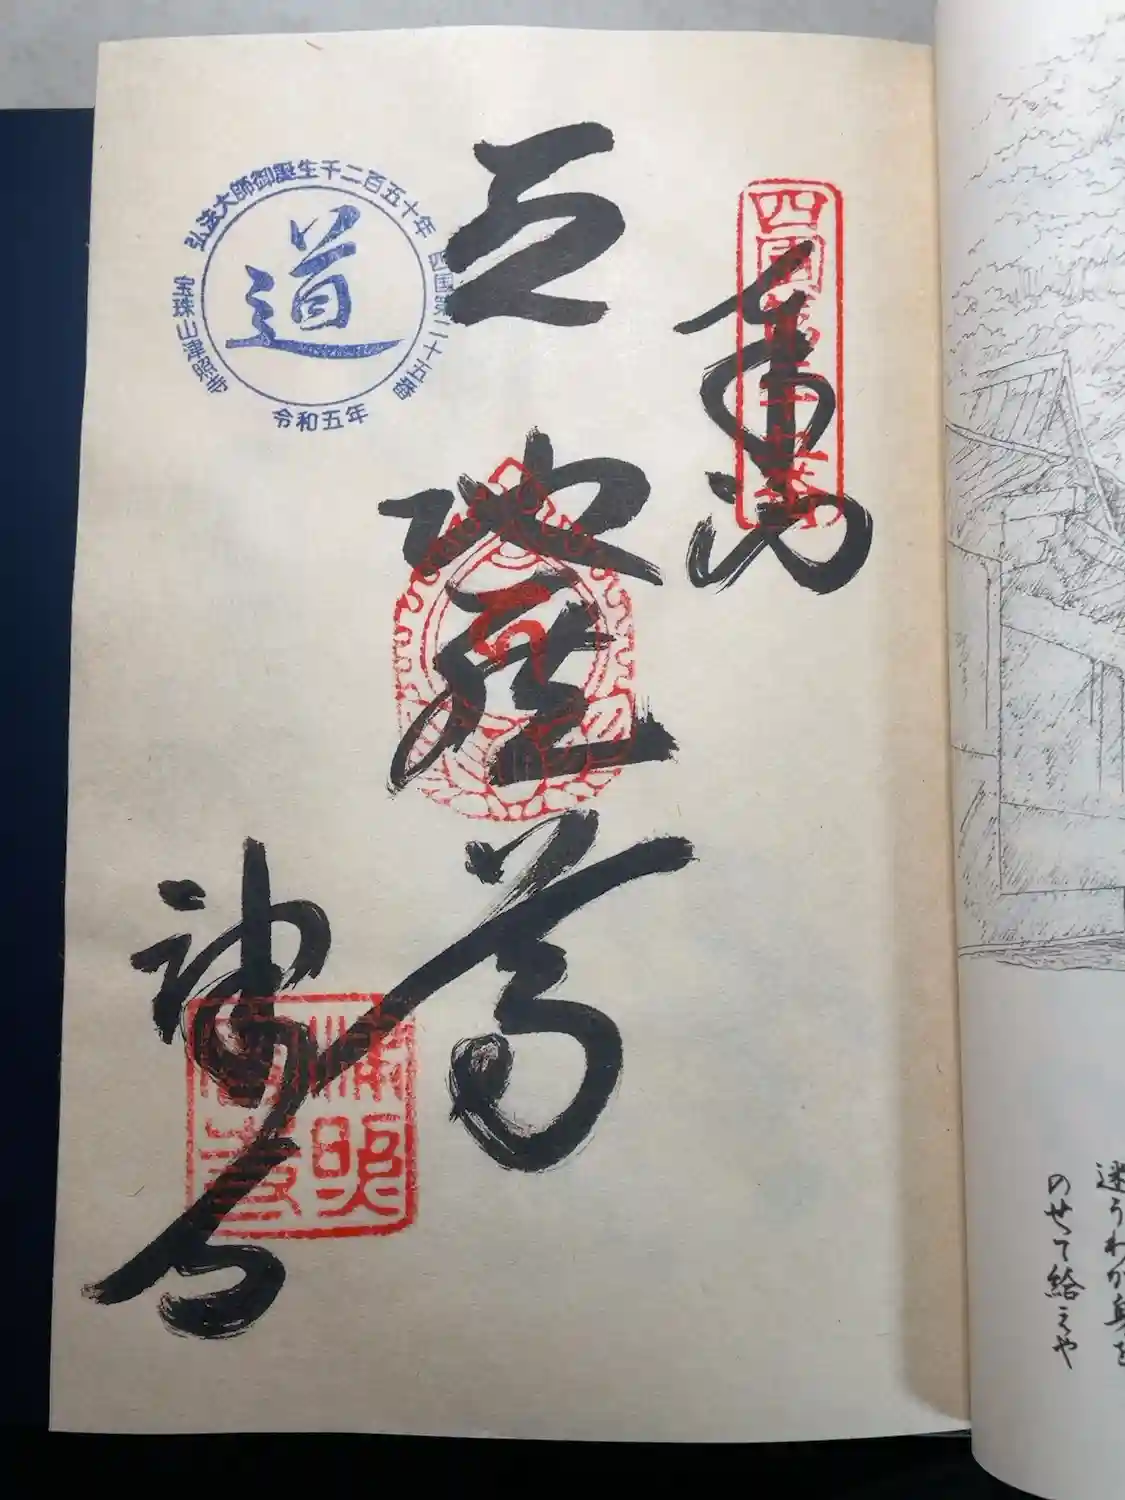 四國第二十五番
奉納
立地蔵尊
津寺
津照寺
弘法大師御誕生千二百五十年
四国第二十五番
宝珠山津照寺
令和五年
道
迷うわが身を
のせて給えや